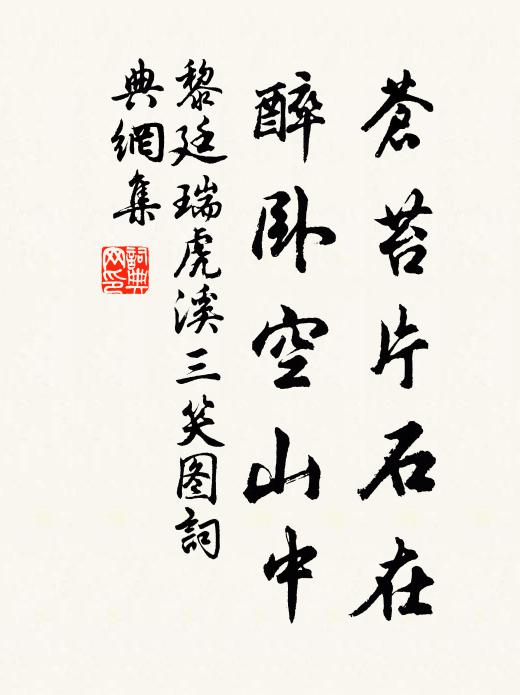 蒼苔片石在
醉臥空山中
黎廷瑞虎溪三笑图詞
典網集
詞典网印